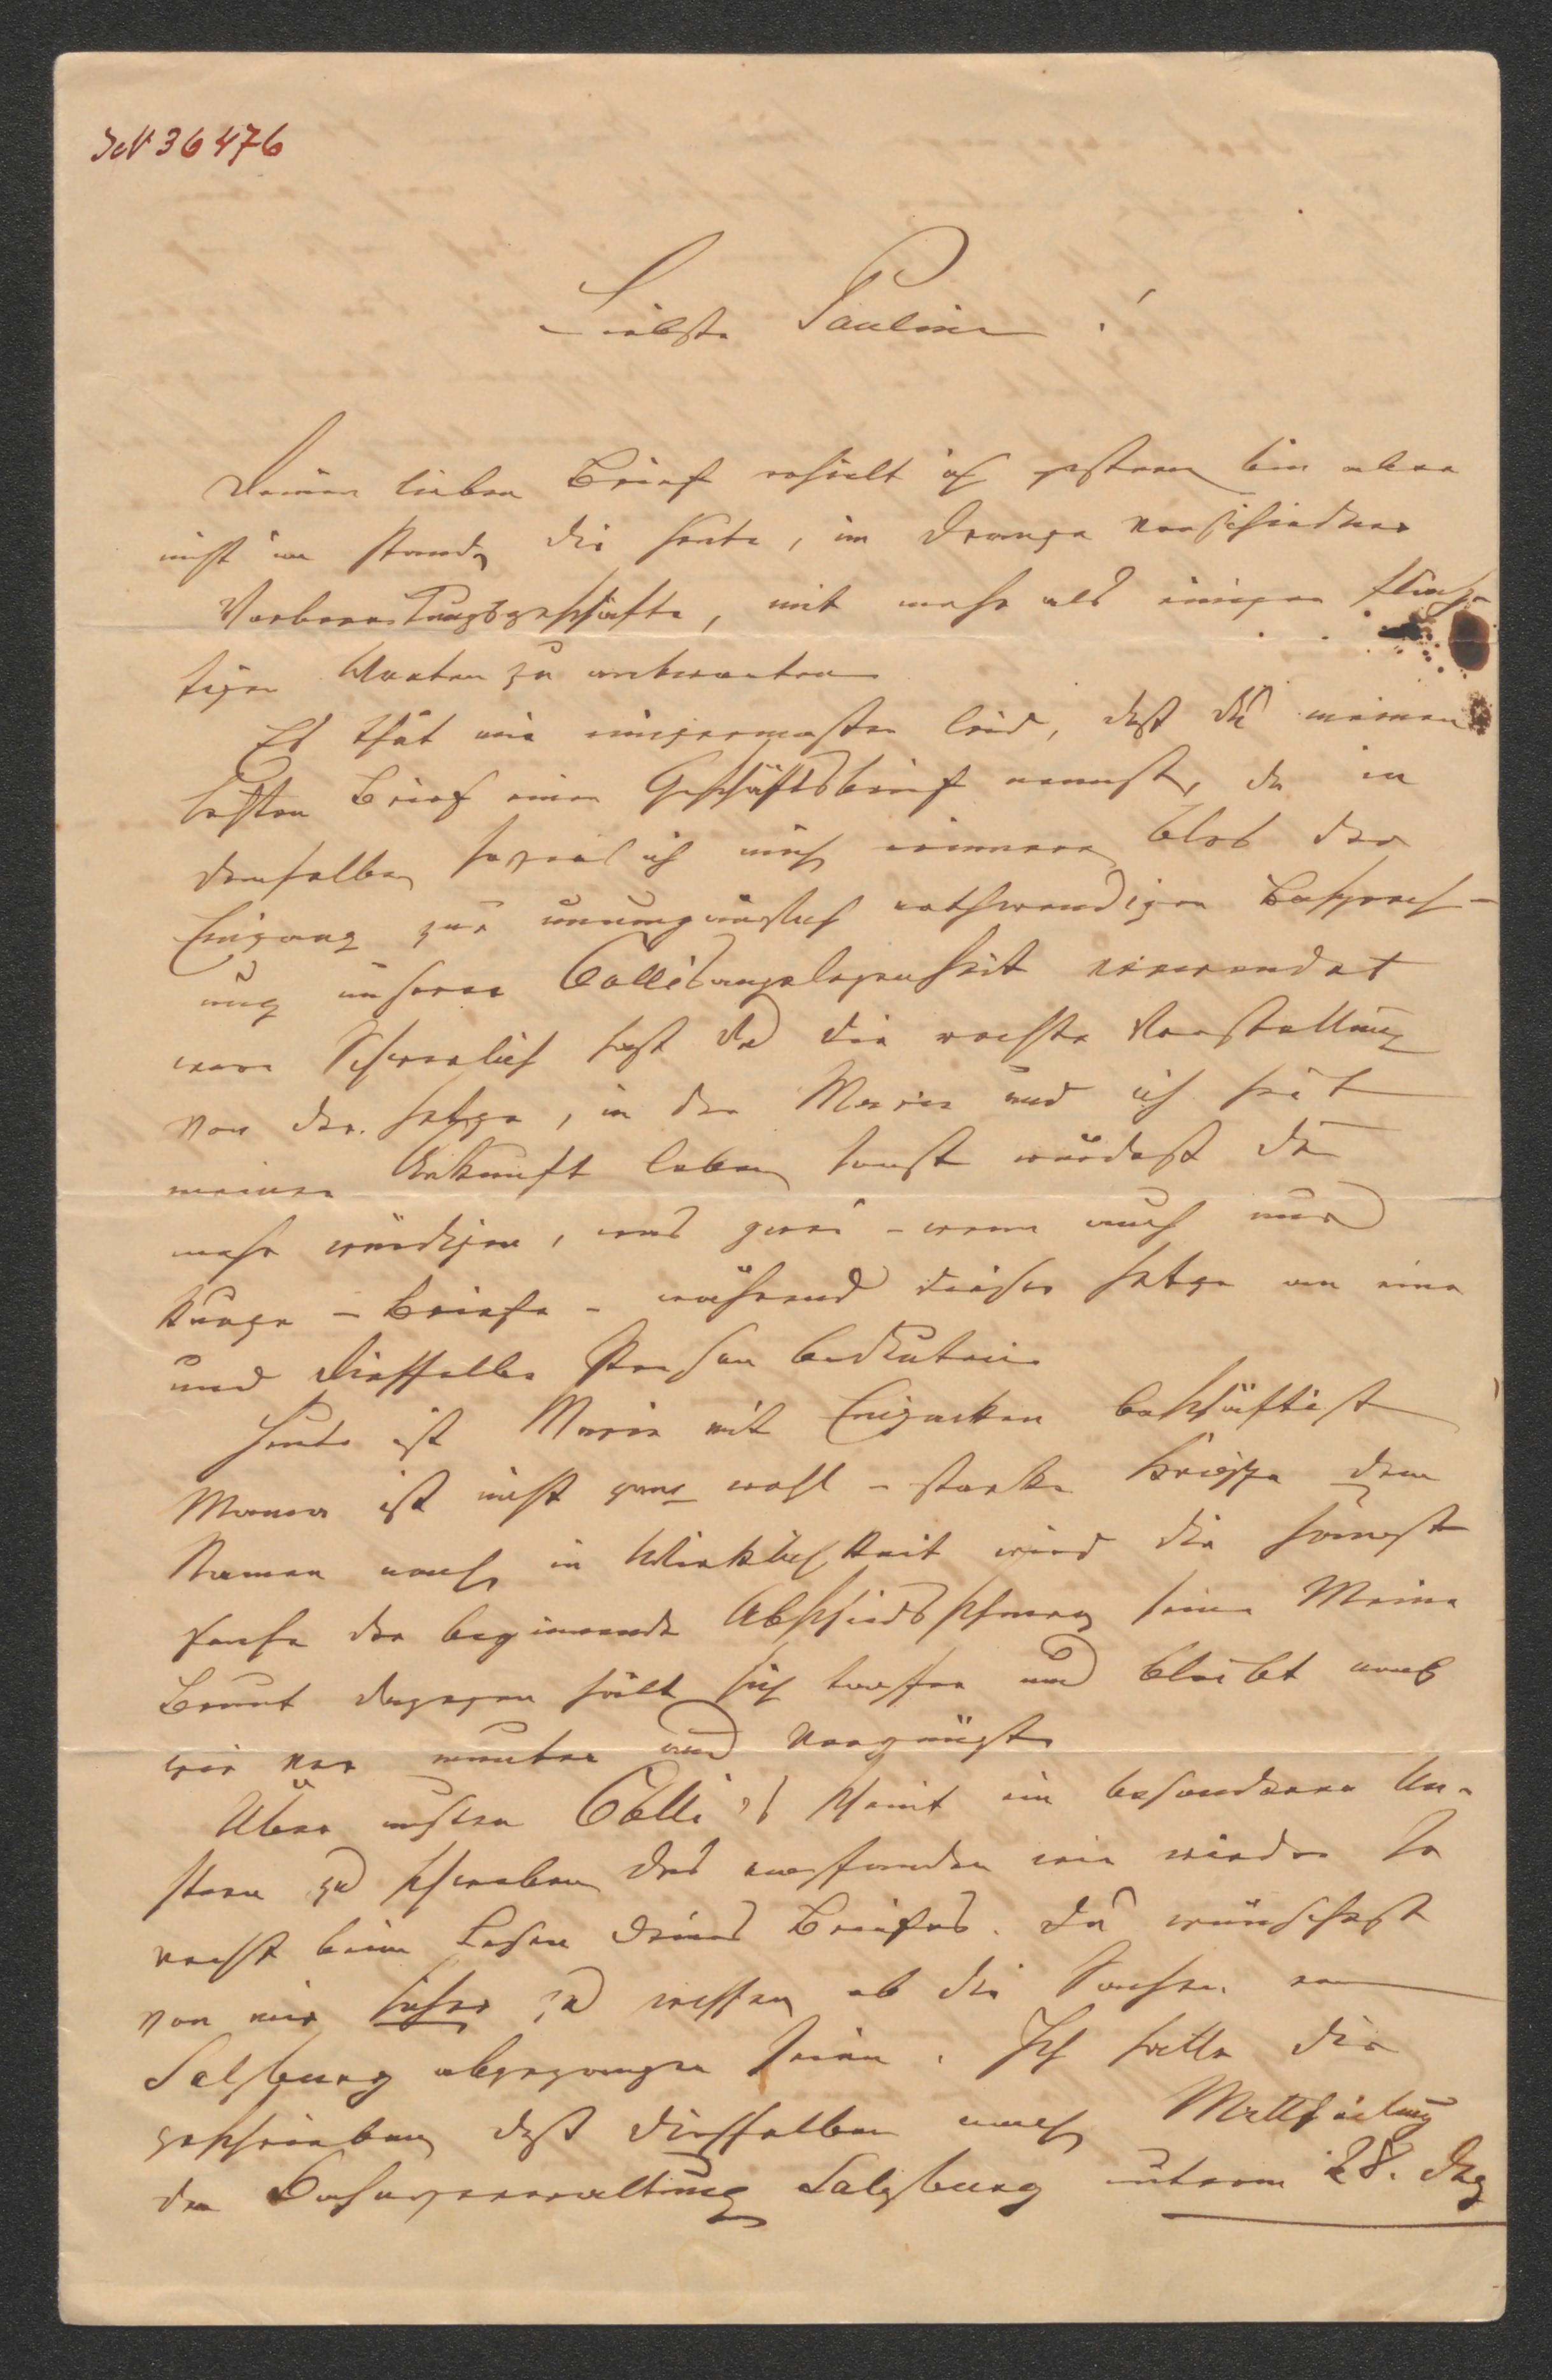 JcN 36476
Liebste Pauline!
Deinen lieben Brief erhielt ich gestern bin aber
nicht im stande Dir heute, im Drange verschiedener
Vorbereitungsgeschäfte, mit mehr als einigen flüch-
tigen Worten zu antworten
Es thut mir einigermaßen leid, daß Du meinen
letzten Brief einen Geschäftsbrief nennst, da in
demselben soviel ich mich erinnere blos der
Eingang zur unumgänglich nothwendigen Besprech-
ung unserer Colliangelegenheit verwendet
war Schwerlich hast Du die rechte Vorstellung
von der Hetze, in der Marie und ich seit
meiner Ankunft leben sonst würdest Du
mehr würdigen, was zwei - wenn auch nur
kurze - Briefe - während dieser Hetze an eine
und dieselbe Person bedeuten
Heute ist Marie mit Einpacken beschäftigt
Mama ist nicht ganz wohl - starke Grippe dem
Namen nach, in Wirklichkeit wird die
der beginnende Abschiedsschmerz sein Meine
Braut dagegen hält sich tapfer und bleibt nach
wie vor munter und vergnügt
Über unsern Colli's scheint ein besonderer Un-
stern zu schweben das empfanden wir wieder so
recht beim Lesen Deines Briefes. Du wünschest
von mir zu wissen ob die Sachen von
Salzburg abgegangen seien. Ich hatte Dir
geschrieben daß dieselben nach Mittheilung
der Bahnverwaltung Salzburg unterm 28. Dez